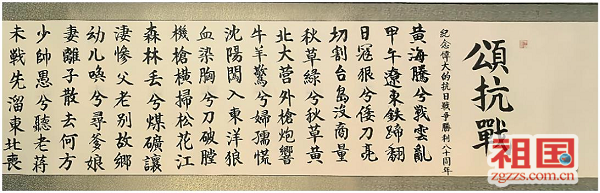 頌抗戰
紀念偉大的抗日戰爭勝利八十周年
黃海騰兮戰雲亂
甲午遼東鐵蹄翻
日寇狠兮倭刀亮
切割台島沒商量
秋草綠兮秋草黃
北大营外槍炮響
牛羊驚兮婦孺慌
沈陽闖入東洋狼
血染胸兮刀破膛
機槍橫掃松花江
森林丟兮煤礦讓
淒慘父老别故鄉
幼儿喚兮尋爹娘
妻離子散去何方
少帥愚兮聽老蔣
未戰先溜東北喪
祖国
zgzzs.com.cn